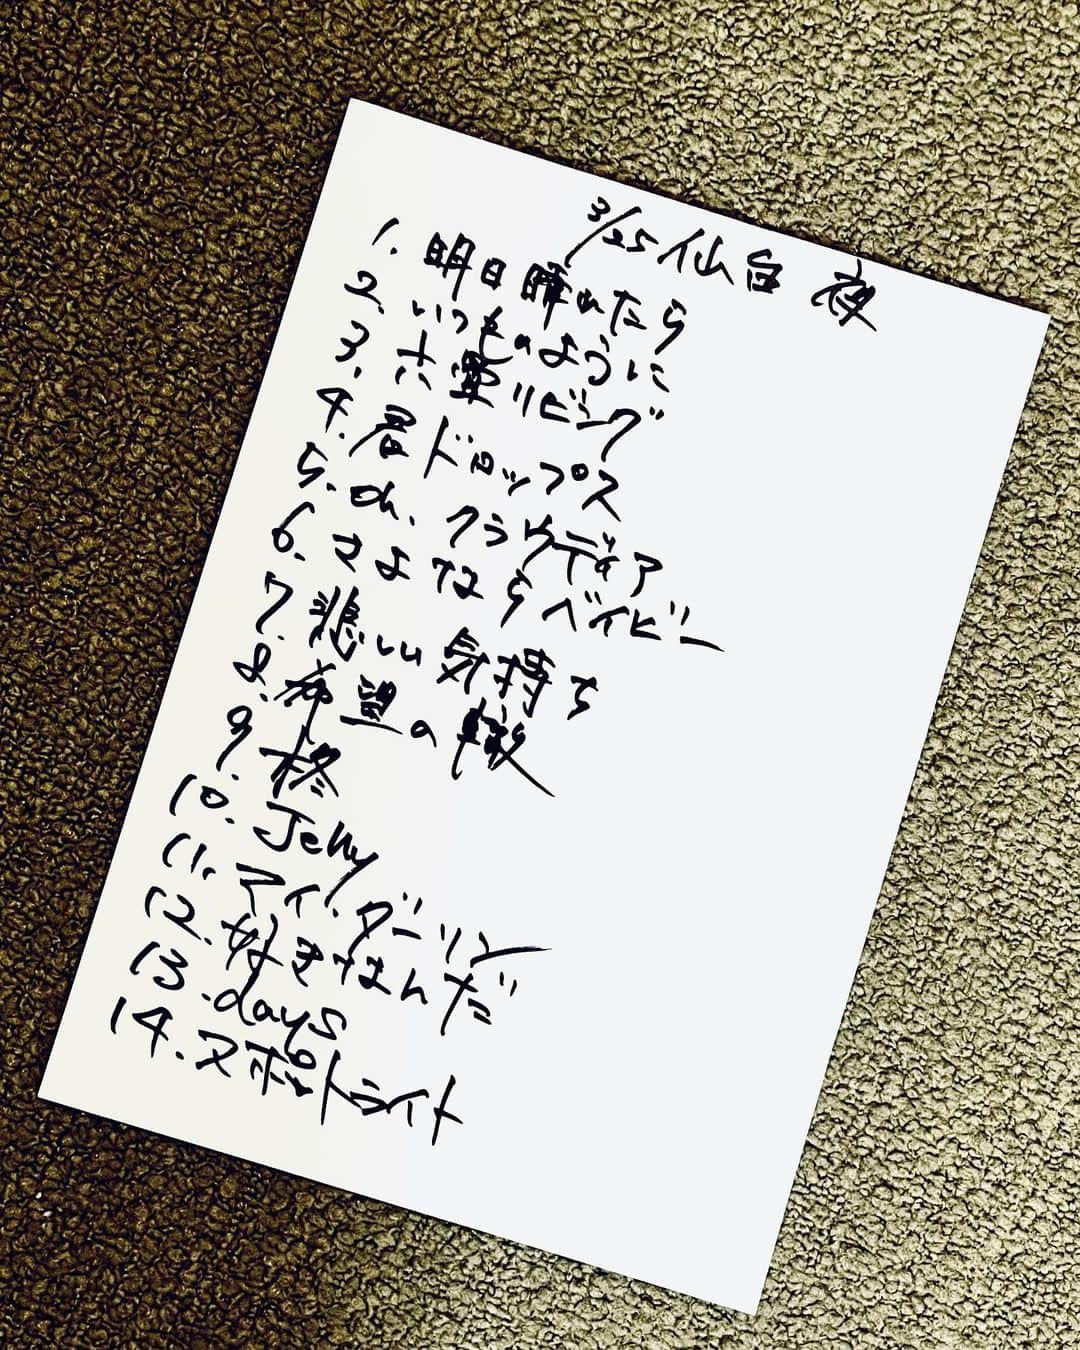 3/25 仙台 夜
1. 明日晴れたら
2. いつものように
3. 六畳リビング
4. 君ドロップス
5. oh. クラウディア
6. さよならベイビー
7. 悲しい気持ち
8. 希望の轍
9. 柊
10. Jelly
11. マイ.ダーリン
12. 好きなんだ
13. days
14. スポットライト